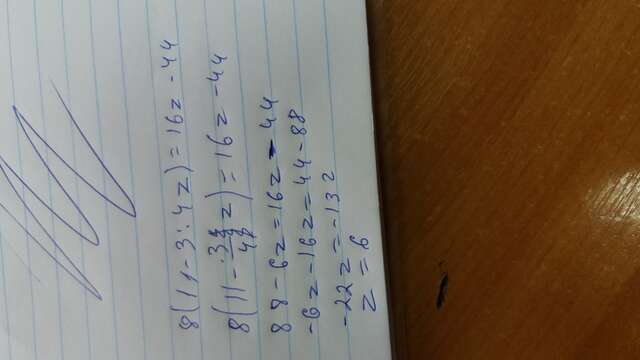 8(11-3:4z)=16z-44
8(11-\frac{3}{4}z)=16z-44
88-6z=16z-44
-6z-16z=44-88
-22z=-132
z=6